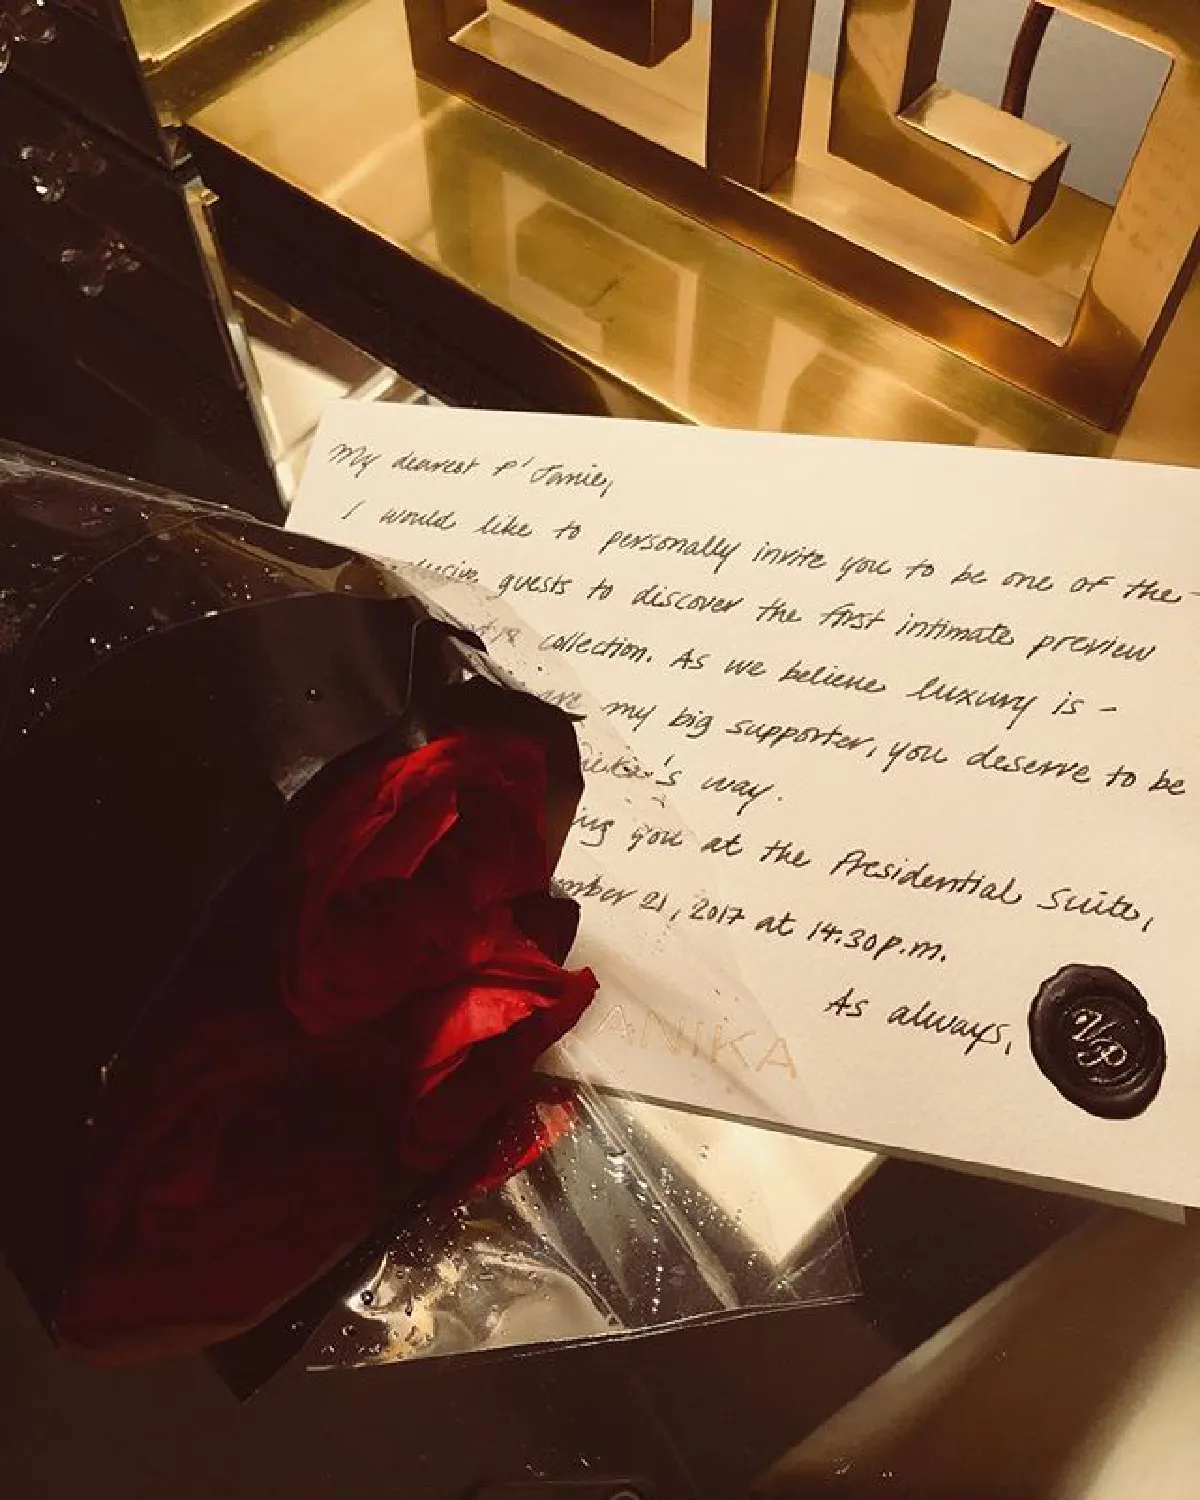 My dearest P' Janie,
I would like to personally invite you to be one of the-
guests to discover the first intimate preview
collection. As we believe luxury is -
are my big supporter, you deserve to be
's way.
ing you at the Presidential Suite,
mber 21, 2017 at 14.30p.m.
As always,
VP
ANIKA